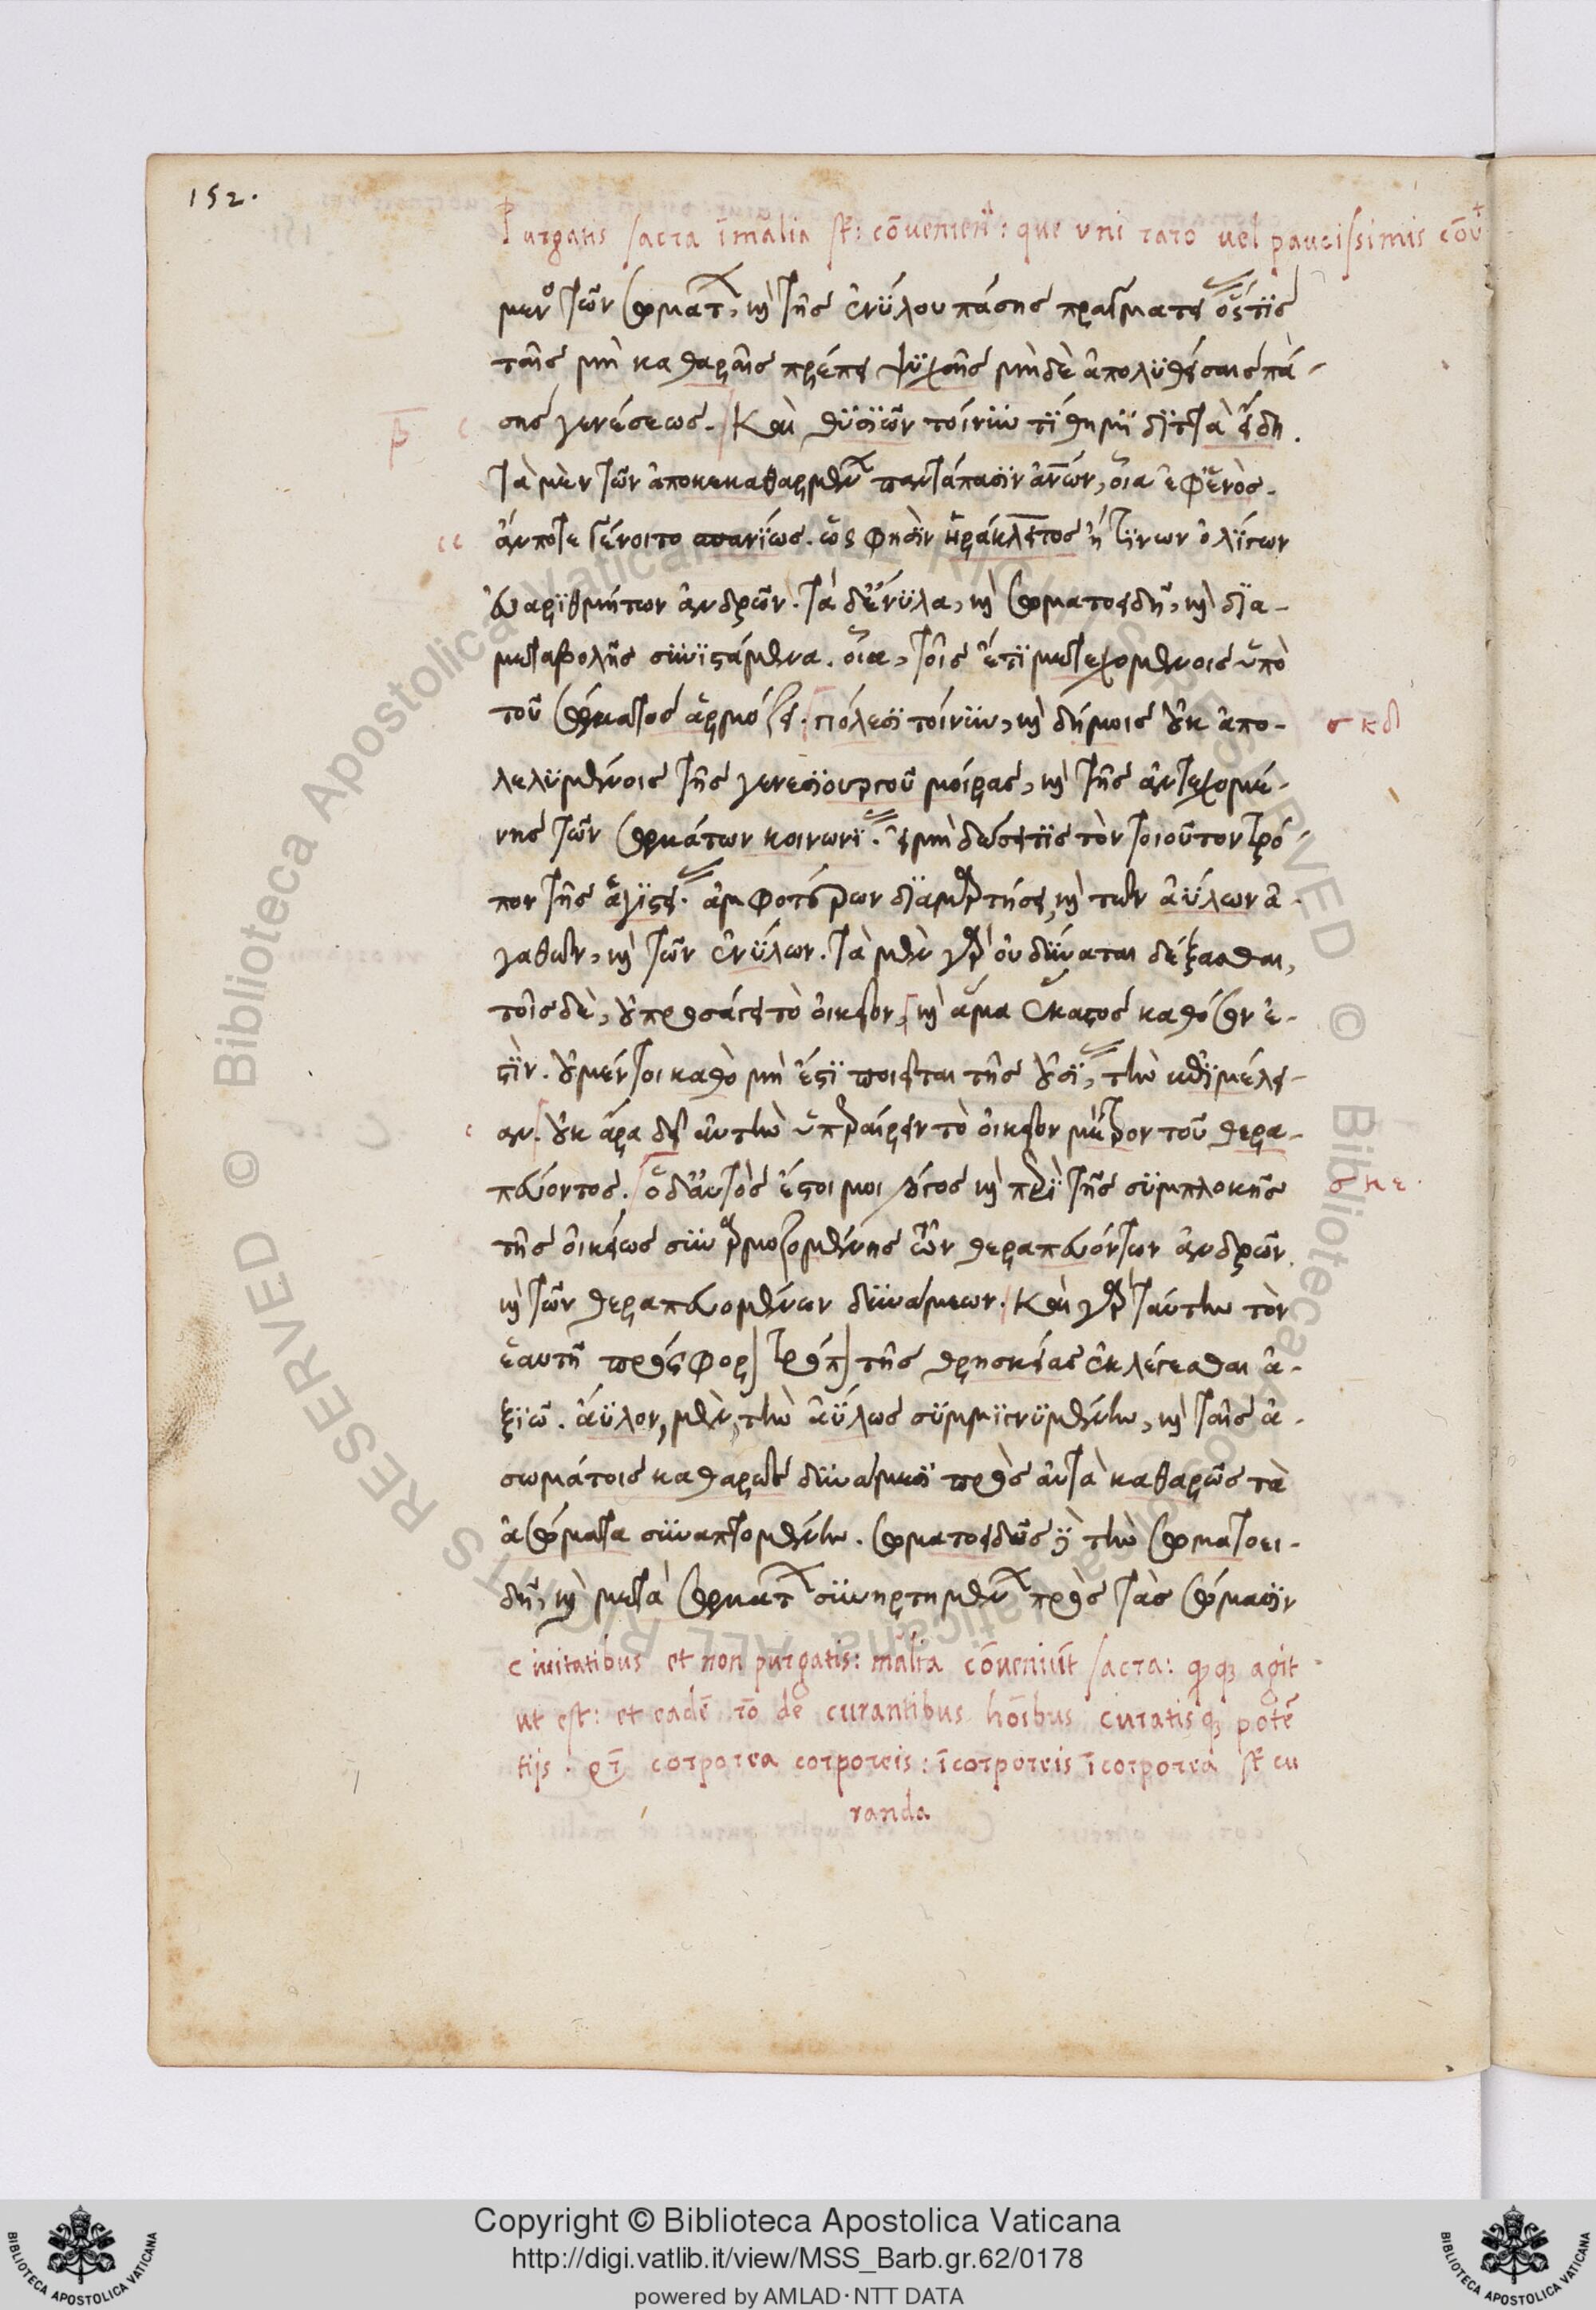 152.
Purgatis sacra īmālia st̄: cōvenient: que uni raro vel paucissimis cōv
μενο τῶν σωμάτων, καὶ τῆς ἐνύλου πάσης πραγματείας ὅστις
ταῖς μὴ καθαραῖς πρέπει ψυχαῖς μηδὲ ἀπολυθείσαις πά-
σης γενέσεως. Καὶ θυσιῶν τοίνυν τίθημι διττὰ εἴδη.
τὰ μὲν τῶν ἀποκεκαθαρμένων παντάπασιν ἀνων, οἷα ἐφ' ἑνὸς
ἄν ποτε γένοιτο σπανίως. ὥς φησιν ἡράκλειτος ἤ τινων ὀλίγων
εὐαριθμήτων ἀνδρῶν. τὰ δ' ἔνυλα, καὶ σωματοειδῆ, καὶ διὰ
μεταβολῆς συνιστάμενα. οἷα, τοῖς ἔτι μετεχομένοις ὑπὸ
τοῦ σώματος ἁρμόζει. πόλεσι τοίνυν, καὶ δήμοις οὐκ ἀπο-
λελυμένοις τῆς γενεσιουργοῦ μοίρας, καὶ τῆς ἀντεχομέ-
νης τῶν σωμάτων κοινωνίας. εἰ μὴ δώσει τις τὸν τοιοῦτον τρό-
πον τῆς ἁγιστείας. ἀμφοτέρων διαμαρτήσει, καὶ τῶν ἀύλων ἀ-
γαθῶν, καὶ τῶν ἐνύλων. τὰ μὲν γὰρ οὐ δύναται δέξασθαι,
τοῖς δὲ, οὐ προσάγει τὸ οἰκεῖον, καὶ ἅμα ἕκαστος καθό ἐ-
στιν. οὐ μέντοι καθὸ μὴ ἔστι ποιεῖται τῆς ὁσίας, τὴν ἐπιμέλει-
αν. οὐκ ἄρα δεῖ αὐτὴν ὑπεραίρειν τὸ οἰκεῖον μέτρον τοῦ θερα-
πεύοντος. ὁ δ' αὐτὸς ἔστι μοι λόγος καὶ περὶ τῆς συμπλοκῆς
τῆς οἰκείως συναρμοζομένης τῶν θεραπευόντων ἀνδρῶν.
καὶ τῶν θεραπευομένων δυνάμεων. Καὶ γὰρ ταύτην τὸν
ἑαυτῇ πρόσφορον τρόπον τῆς θρησκείας ἐκλέγεσθαι ἀ-
ξιῶ. ἄυλον, μὲν, τὴν ἀύλως συμμιγνυμένην, καὶ ταῖς ἀ-
σωμάτοις καθαρῶς δυνάμεσι πρὸς αὐτὰ καθαρῶς τὰ
ἀσώματα συναπτομένην. σωματοειδῶς δὲ τὴν σωματοει-
δῆ, καὶ μετὰ σωμάτων συνηρτημένην πρὸς τὰς σώμασιν
civitatibus et non purgatis: mālia cōveniūt sacra: agit
ut est: et eadē rō de curantibus hōibus curatisq; potē
tijs. corporea corporeis: īcorporeis īcorporea st̄ cu
randa
σκδ
σκε.
Copyright © Biblioteca Apostolica Vaticana
http://digi.vatlib.it/view/MSS_Barb.gr.62/0178
powered by AMLAD·NTT DATA